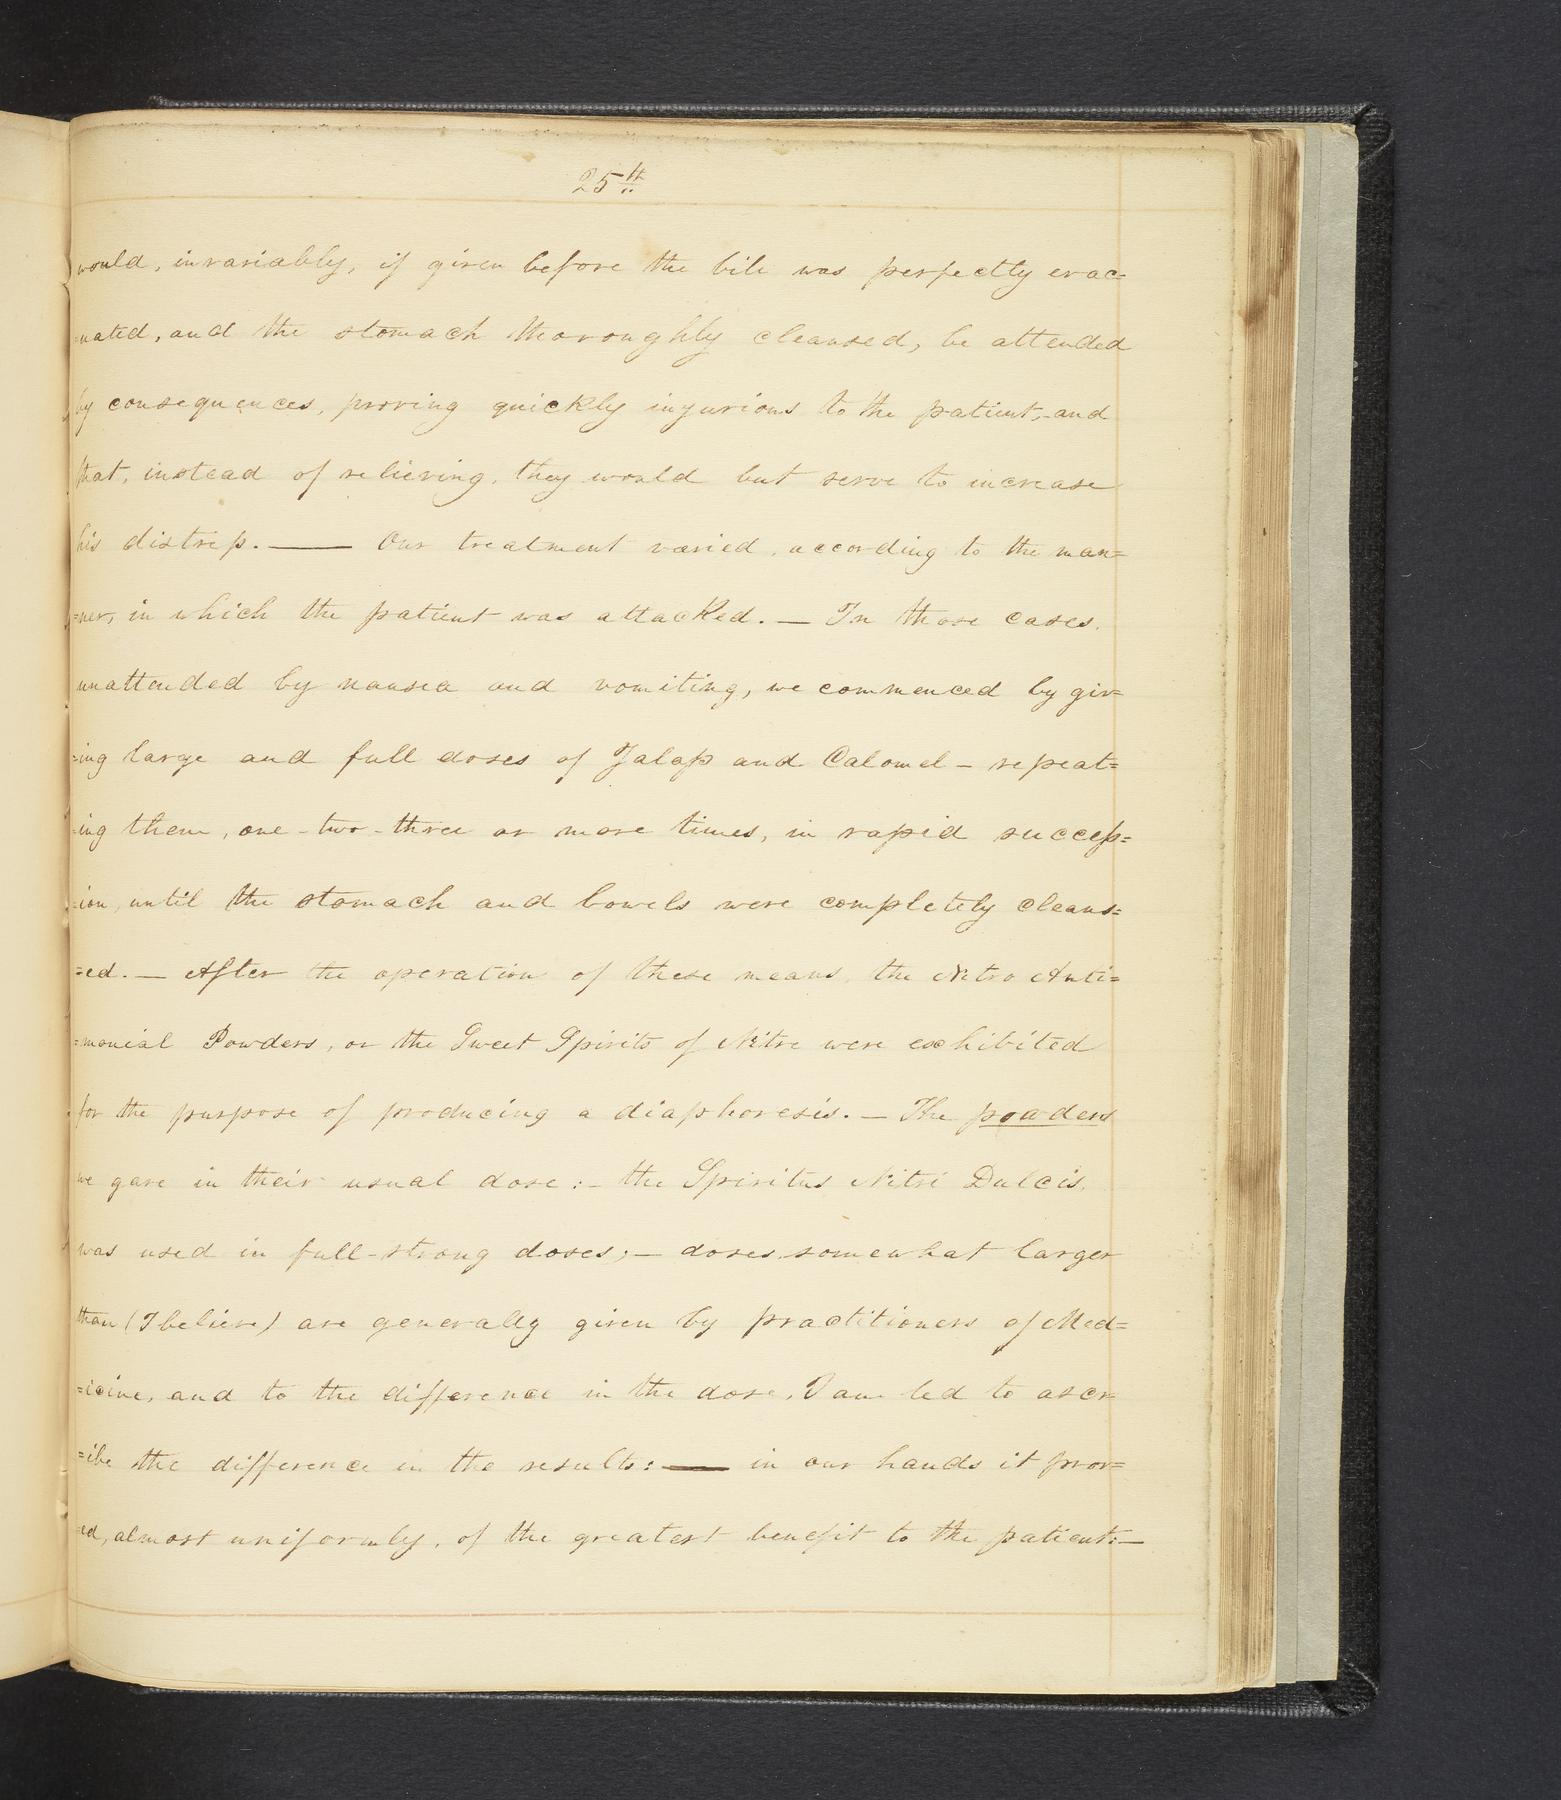 25th
would, invariably, if given before the bile was perfectly evac-
=uated, and the stomach thoroughly cleansed, be attended
by consequences, proving quickly injurious to the patient, and
that, instead of relieving, they would but serve to increase
his distress. — Our treatment varied, according to the man=
=ner, in which the patient was attacked. — In those cases,
unattended by nausea and vomiting, we commenced by giv=
=ing large and full doses of Jalap and Calomel – repeat=
=ing them, one - two - three or more times, in rapid success=
=ion, until the stomach and bowels were completely cleans=
=ed. — After the operation of these means, the Nitro Anti=
=monial Powders, or the Sweet Spirits of Nitre were exhibited
for the purpose of producing a diaphoresis. — The powders
we gave in their usual dose :- the Spiritus Nitri Dulcis,
was used in full-strong doses; — doses somewhat larger
than (I believe) are generally given by practitioners of Med=
=icine, and to the difference in the dose, I am led to ascr-
=ibe the difference in the results: — in our hands it prov=
=ed, almost uniformly, of the greatest benefit to the patient:—